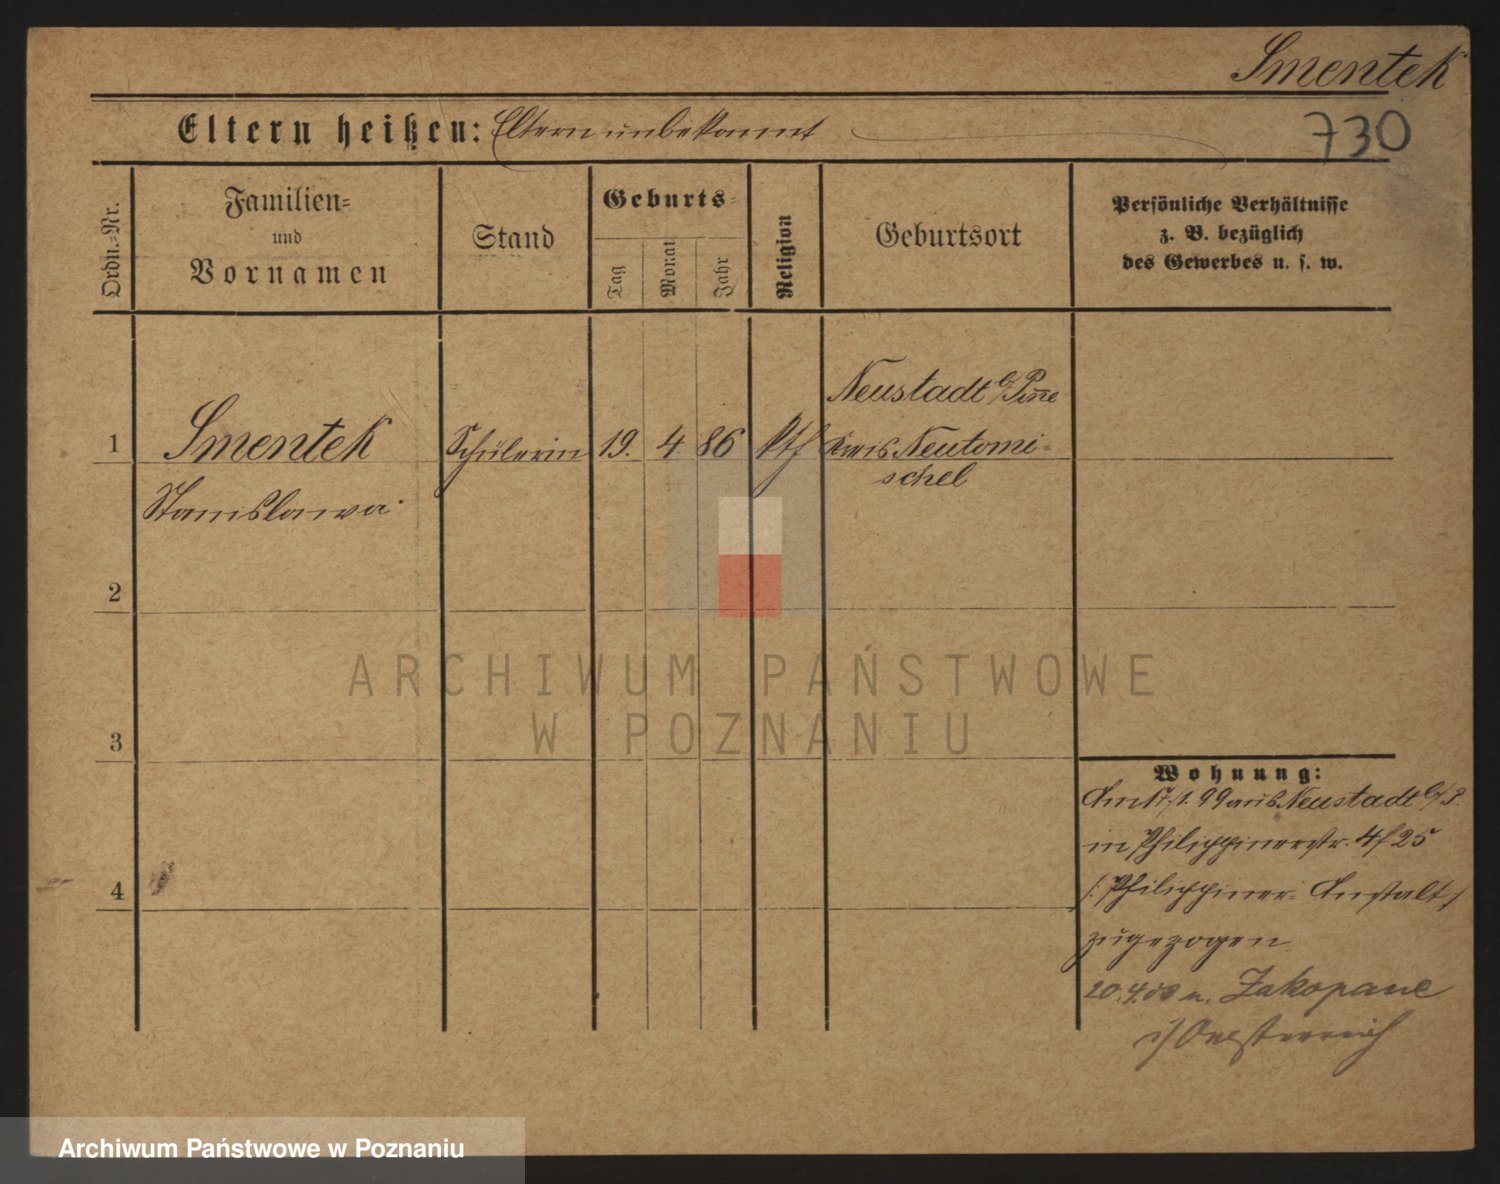 Smentek
730
Eltern heißen: Eltern unbekannt
Ordn.-Nr.
Familien-
und
Vornamen
Stand
Geburts-
Tag
Monat
Jahr
Religion
Geburtsort
Persönliche Verhältnisse
z. B. bezüglich
des Gewerbes u. s. w.
Neustadt b/Pinne
1 Smentek Schülerin 19. 4 86 kth Kreis Neutomi-
schel
Stanislawa
2
3
4
Wohnung:
Am 17/1. 99 aus Neustadt b/P.
in Philippinerstr. 4/25
/: Philippiner-Anstalt :/
zugezogen
20.4.00 n. Zakopane
i/Oesterreich
ARCHIWUM PAŃSTWOWE
W POZNANIU
Archiwum Państwowe w Poznaniu